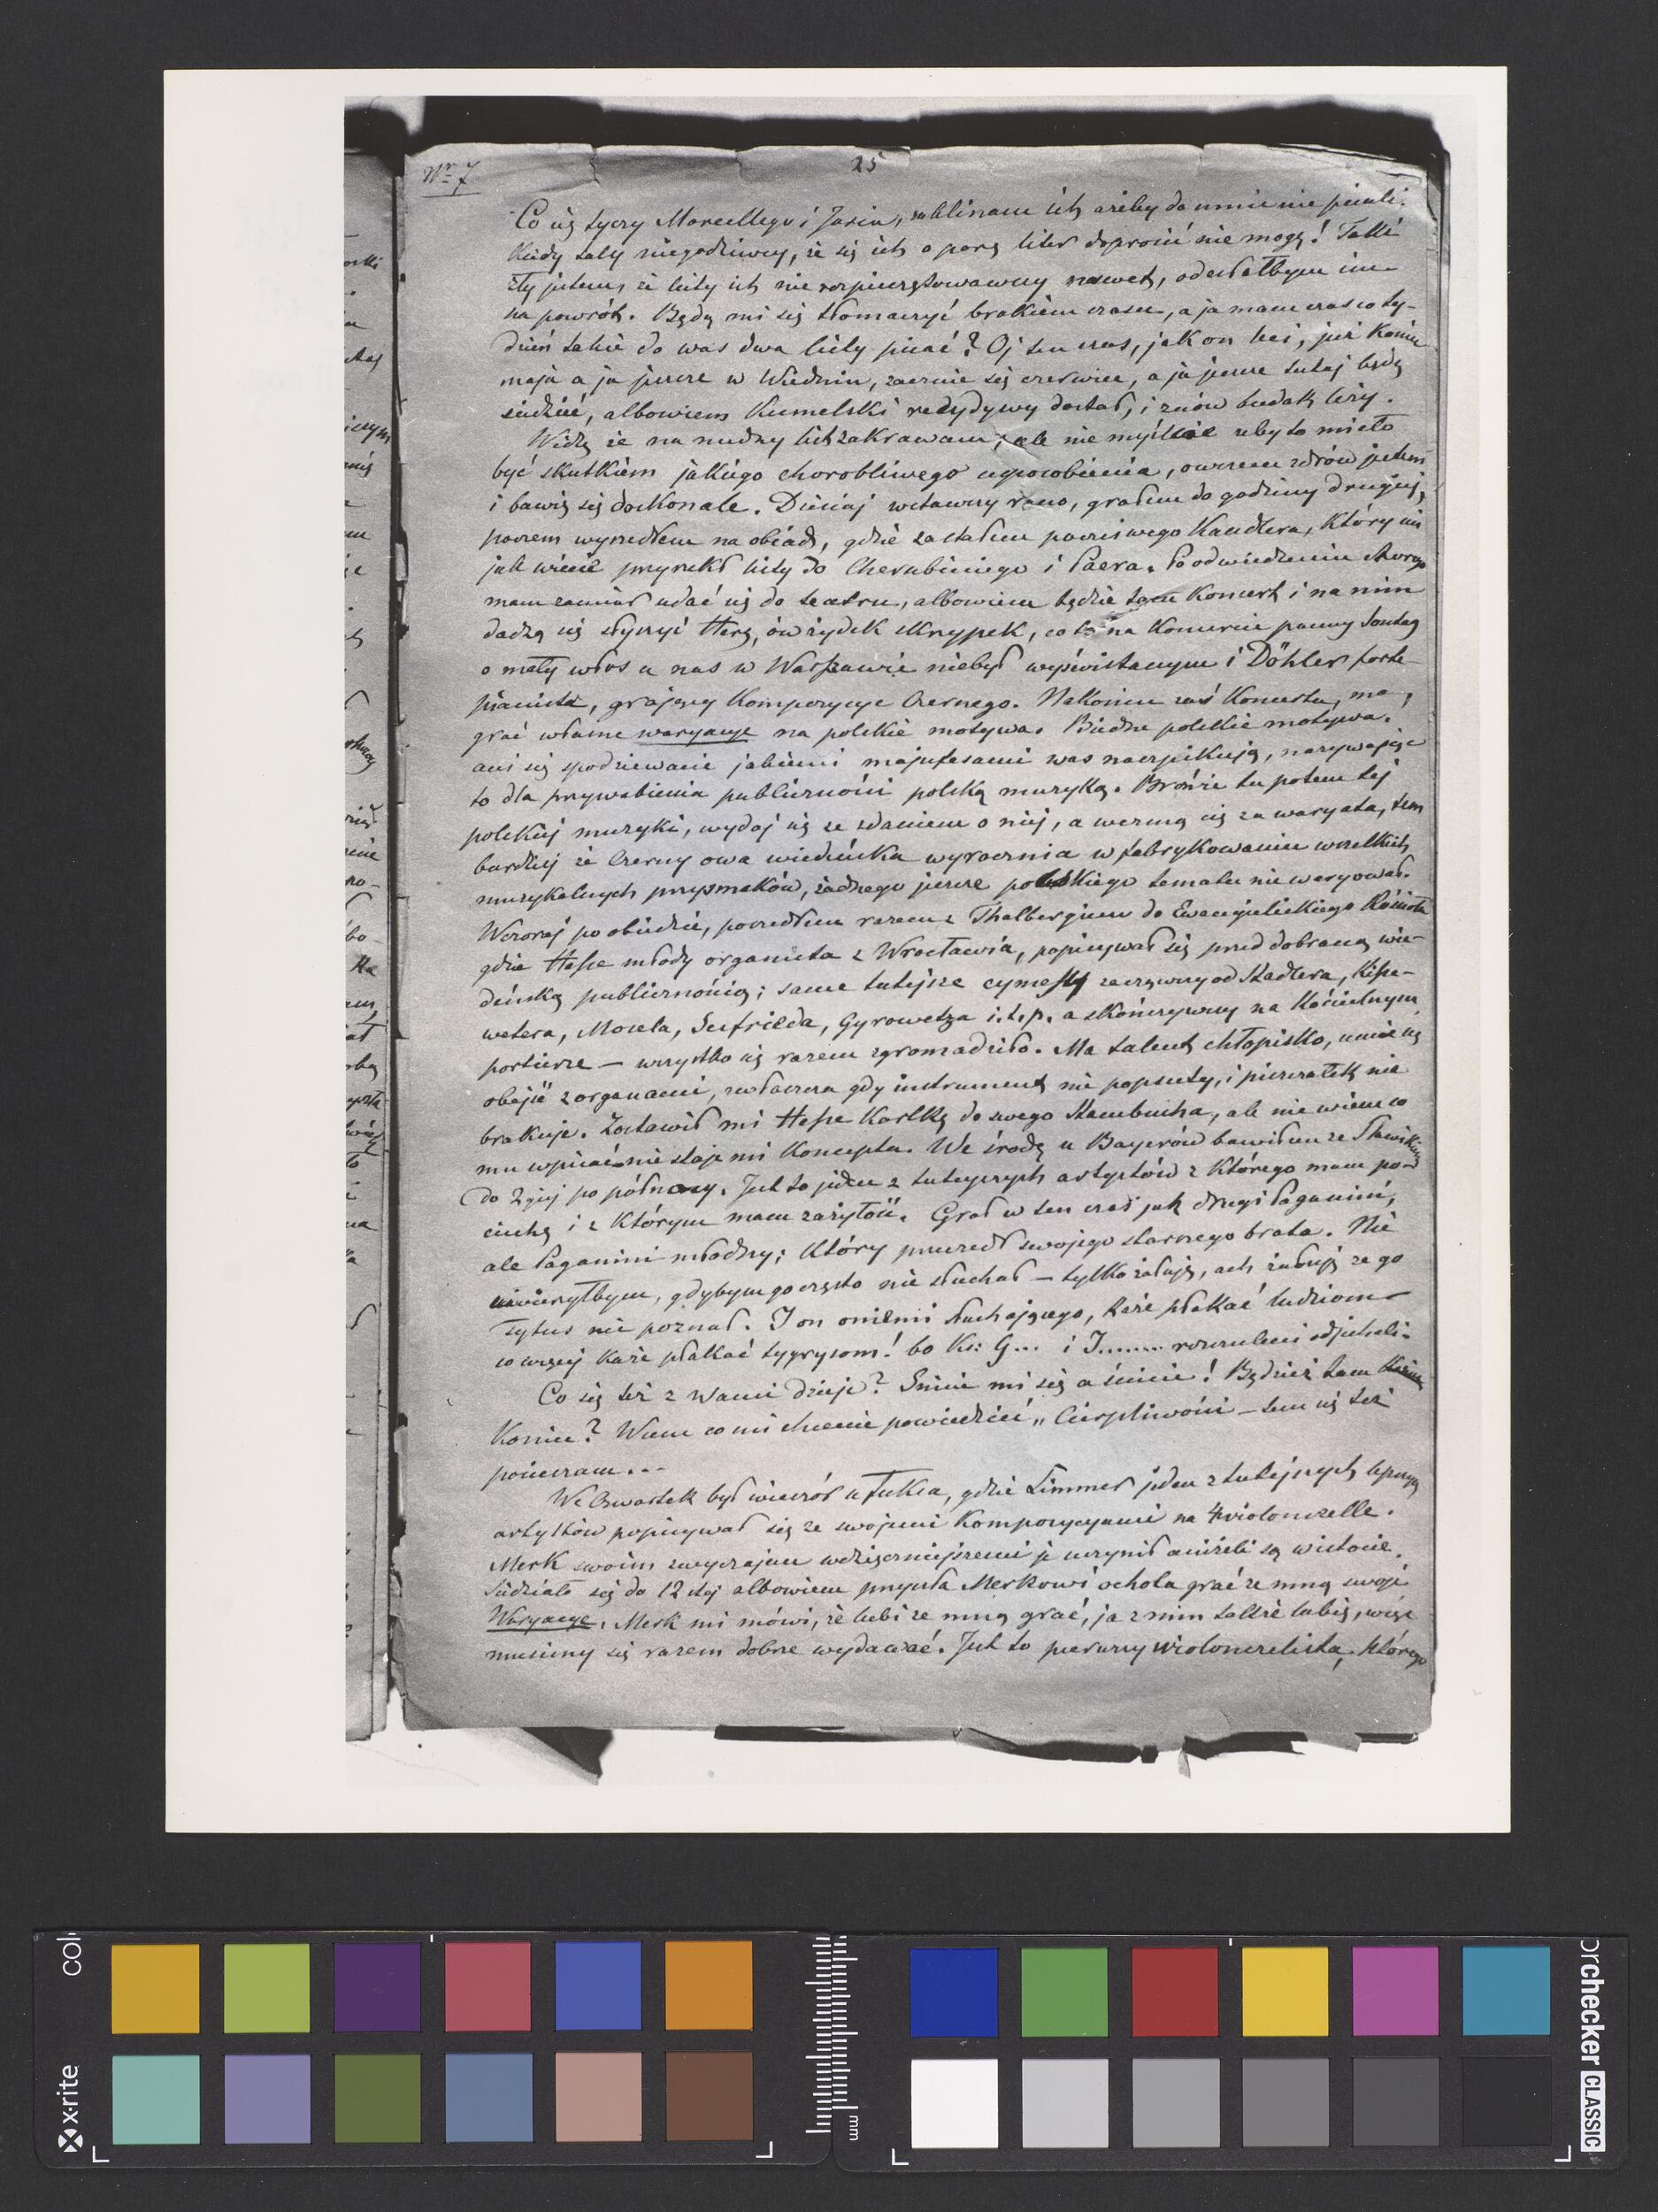 Nr 7
25
Co się tyczy Marcellego i Jasia, zaklinam ich ażeby do mnie nie pisali.
Kiedy tacy niegodziwcy, że się ich o parę liter doprosić nie mogę! Takli
zły jestem, że listy ich nie rozpieczętowawszy nawet, odesłałbym im
na powrót. Będą mi się tłomaczyć brakiem czasu, a ja mam czas co ty-
dzień takie do was dwa listy pisać? Oj ten czas, jak on leci, już koniec
maja a ja jeszcze w Wiedniu, zacznie się czerwiec, a ja jeszcze tutaj będę
siedzieć, albowiem Kumelski recydywy dostał, i znów biedak leży.
Widzę że na nudny list zakrawam, ale nie myślcie żeby to miało
być skutkiem jakiego chorobliwego usposobienia, owszem zdrów jestem
i bawię się doskonale. Dzisiaj wstawszy rano, grałem do godziny drugiej,
poczem wyszedłem na obiad, gdzie zastałem poczciwego Kandlera, który mi
jak wiecie przyrzekł listy do Cherubiniego i Paera. Po odwiedzeniu chorego
mam zamiar udać się do teatru, albowiem będzie tam koncert i na nim
dadzą się słyszyć Herz, ów żydek skrzypek, co to na koncercie panny Sontag
o mały włos u nas w Warszawie niebył wyświstanym i Döhler forte-
pianista, grający kompozycye Czernego. Nakoniec zaś koncertu, ma
grać własne waryacye na polskie motywa. Biedne polskie motywa.
ani się spodziewacie jakiemi majufesami was naszpikują, nazywając
to dla przywabienia publiczności polską muzyką. Brońże tu potem tej
polskiej muzyki, wydaj się ze zdaniem o niej, a wezmą cię za waryata, tem
bardziej że Czerny owa wiedeńska wyrocznia w fabrykowaniu wszelkich
muzykalnych przysmaków, żadnego jeszcze polskiego tematu nie waryował.
Wczoraj po obiedzie, poszedłem razem z Thalbergiem do Ewangielickiego kościoła
gdzie Hesse młody organista z Wrocławia, popisywał się przed dobraną wie-
deńską publicznością; same tutejsze cymesy zacząwszy od Stadlera, Kise-
wetera, Mosela, Seifrieda, Gyrowetza i.t.p. a skończywszy na kościelnym
portierze — wszystko się razem zgromadziło. Ma talent chłopisko, umie się
obejść z organami, zwłaszcza gdy instrument nie popsuty, i piszczałek nie
brakuje. Zostawił mi Hesse kartkę do swego Stambucha, ale nie wiem co
mu wpisać nie staje mi konceptu. We środę u Bayerów bawiłem ze Sławikiem
do 2giej po północy. Jest to jeden z tutejszych artystów z którego mam po-
ciechę i z którym mam zażyłość. Grał w ten czas jak drugi Paganini,
ale Paganini młodszy; który przeszedł swojego starszego brata. Nie
uwierzyłbym, gdybym go często nie słuchał — tylko żałuję, ach żałuję że go
Tytus nie poznał. I on oniemi słuchającego, każe płakać ludziom
co więcej każe płakać tygrysom! bo Ks: G... i J........ rozczuleni odjechali.
Co się też z Wami dzieje? Śnicie mi się a śnicie! Będzież tam
koniec? Wiem co mi chcecie powiedzieć „Cierpliwości — tem się też
pocieszam...
We Czwartek był wieczór u Fuksa, gdzie Limmer jeden z tutejszych lepszych
artystów popisywał się ze swojemi kompozycyami na 4 violonczelle.
Merk swoim zwyczajem wdzięczniejszemi je uczynił aniżeli są w istocie.
Siedziało się do 12stej albowiem przyszła Merkowi ochota grać ze mną swoje
Waryacye. Merk mi mówi, że lubi ze mną grać, ja z nim także lubię, więc
musimy się razem dobrze wydawać. Jest to pierwszy wiolonczelista, którego
x-rite
mm
checker CLASSIC